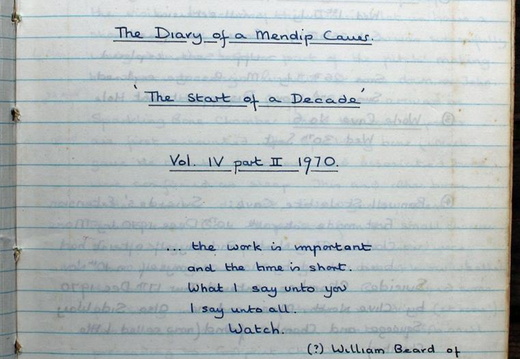 The Diary of a Mendip Caver.
'The Start of a Decade'
Vol. IV part II 1970.
... the work is important
and the time is short.
What I say unto you
I say unto all.
Watch.
(?) William Beard of